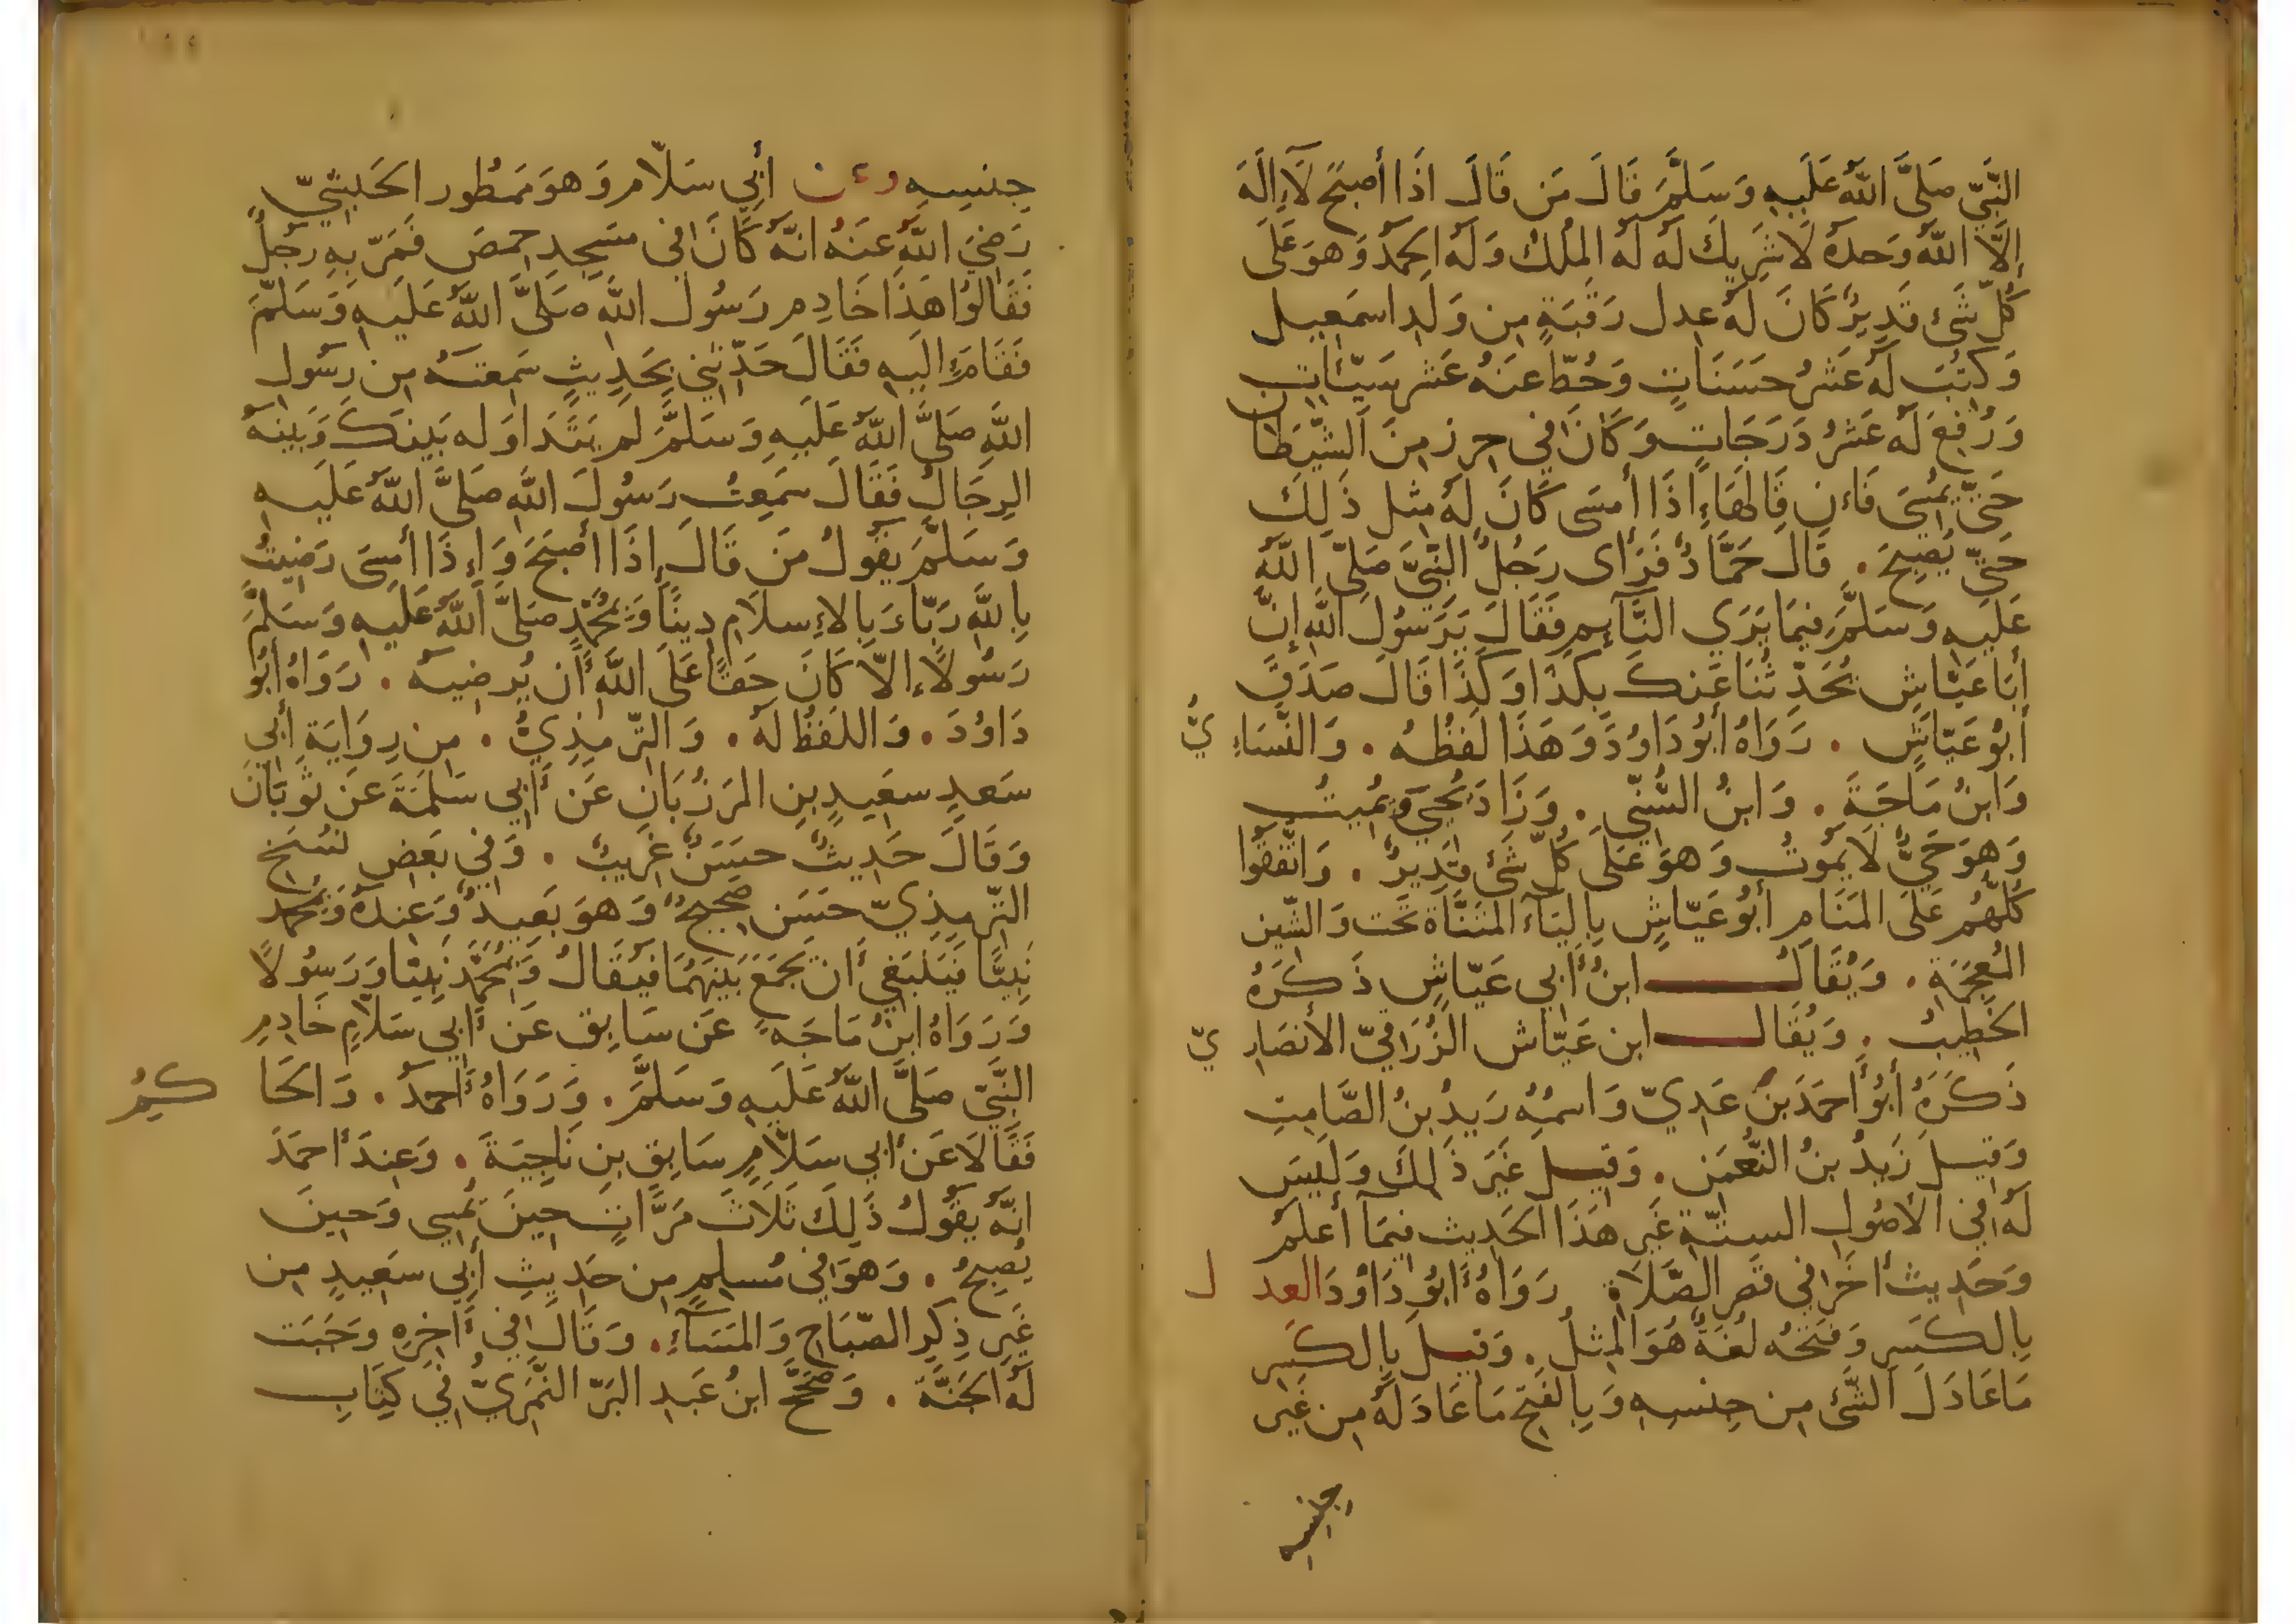 النَّبِيِّ صَلَّى اللَّهُ عَلَيهِ وَسَلَّمَ قَالَ مَن قَالَ اذَا أصبَحَ لَا إِلَهَ
إِلَّا اللَّهُ وَحدَهُ لَا شَرِيكَ لَه لَهُ المُلكُ وَلَهُ الحَمدُ وَهوَ عَلَى
كُلِّ شَئ قَدِيرٌ كَانَ لَهُ عِدل رَقَبَةٍ مِن وَلَدِ اسمَعِيل
وَكُتِبَ لَهُ عَشرُ حَسَنَاتٍ وَحُطَّ عَنهُ عَشر سَيِّئَاتٍ
وَرُفِعَ لَه عَشرُ دَرَجَاتٍ وَكَانَ فِي حِرز مِنَ الشَّيطَان
حَتَّى يُمسِىَ فَاءن قَالَهَا إذَا أمسَى كَانَ لَهُ مِثل ذَلِكَ
حَتَّى يُصبِحَ . قَالَ حَمَّادٌ فَرَأى رَجُلٌ النَّبِيَّ صَلَّى اللَّهُ
عَلَيهِ وَسَلَّمَ فِيمَا يَرَى النَّآيِمِ فَقَالَ يَرَسُولَ اللَّهِ إنَّ
أبَا عَيَّاشٍ يُحَدِّثُنَا عَنكَ بِكَذَا وَكَذَا قَالَ صَدَقَ
أبُو عَيَّاشٍ . رَوَاهُ أبُو دَاوُدَ وَهَذَا لَفظُه . وَالنَّسَاءِيُّ
وَابنُ مَاجَةَ . وَابنُ السُّنِّي . وَزَادَ يُحيِي وَيُمِيتُ
وَهوَ حَيٌّ لَا يَمُوتُ وَهوَ عَلَى كُلِّ شَئ قَدِيرٌ . وَاتَّفَقُوا
كُلُّهُم عَلَى المَنَامِ أبُو عَيَّاشٍ بِاليَآءِ المُثَنَّاة تَحت وَالشِّين
المُعجَمَةِ . وَيُقَالُ ابنُ أَبِي عَيَّاشٍ ذَكَرَهُ
الخَطِيبُ . وَيُقَال ابن عَيَّاش الزُّرَقِيّ الأنصَارِيّ
ذَكَرَهُ أبُو أَحمَدَ بنُ عَدِيّ وَاسمُه زَيدُ بنُ الصَّامِتِ
وَقِيلَ زَيدُ بنُ النُّعمَن . وَقِيل غَيرَ ذَلِكَ وَلَيسَ
لَه فِي الأصُولِ السِتَّةِ غَير هَذَا الحَدِيث فِيمَا أعلَمُ
وَحَدِيث أَخَرَ فِي قَصرِ الصَّلَاةِ رَوَاهُ أَبُو دَاوُدَ العدل
بِالكَسرِ وَفَتحُه لُغَةٌ هُوَ المِثلُ . وَقِيلَ بِالكَسرِ
مَا عَادَلَ الشَّئ مِن جِنسِهِ وَبِالفَتحِ مَا عَادَلَهُ مِن غَيرِ
جِنسِهِ
جِنسِهِ وعن أَبِي سَلَّام وَهوَ مَمطُور الحَبَشِيّ
رَضِيَ اللَّهُ عَنهُ انَّه كَانَ فِي مَسجِدِ حِمصَ فَمَرَّ بِهِ رَجُلٌ
فَقَالُوا هَذَا خَادِم رَسُول اللَّهِ صَلَّى اللَّهُ عَلَيهِ وَسَلَّمَ
فَقَامَ إِلَيهِ فَقَالَ حَدِّثنِي بِحَدِيثٍ سَمِعتَهُ مِن رَسُولِ
اللَّهِ صَلَّى اللَّهُ عَلَيهِ وَسَلَّمَ لَم يَتَدَاوَله بَينَكَ وَبَينَهُ
الرِجَالُ فَقَالَ سَمِعتُ رَسُولَ اللَّهِ صَلَّى اللَّهُ عَلَيهِ
وَسَلَّمَ يَقُولُ مَن قَالَ إِذَا أصبَحَ وَإِذَا أمسَى رَضِيتُ
بِاللَّهِ رَبًّا وَبِالاِءسلَامِ دِينًا وَبِمُحَمَّدٍ صَلَّى اللَّهُ عَلَيهِ وَسَلَّمَ
رَسُولًا إلَّا كَانَ حَقًّا عَلَى اللَّهِ أَن يُرضِيَهُ . رَوَاهُ أَبُو
دَاوُدَ . وَاللَفظُ لَهُ . وَالتِّرمِذِيُّ . مِن رِوَايَةِ أَبِي
سَعدٍ سَعِيدِ بنِ المَرزُبَانِ عَن أَبِي سَلَمَةَ عَن ثَوبَان
وَقَالَ حَدِيثٌ حَسَنٌ غَرِيبٌ . وَفِي بَعضِ نُسَخِ
التِّرمِذِيّ حَسَن صَحِيحٌ وَهوَ بَعِيدٌ وَعِندَهُ وَبِمُحَمَّد
نَبِيًّا فَيَنبَغِي أَن يَجمَعَ بَينَهُمَا فَيُقَالُ وَبِمُحَمَّدٍ نَبِيًّا وَرَسُولًا
وَرَوَاهُ ابنُ مَاجَه عَن سَابِق عَن أَبِي سَلَّامٍ خَادِمِ
النَّبِيِّ صَلَّى اللَّهُ عَلَيهِ وَسَلَّمَ . وَرَوَاهُ أَحمَدُ . وَالحَاكِمُ
فَقَالَا عَن أَبِي سَلَّامٍ سَابِقِ بنِ نَاجِيَةَ . وَعِندَ أَحمَدَ
انَّه يَقُولُ ذَلِكَ ثَلَاثَ مَرَّاتٍ حِينَ يُمسِي وَحِينَ
يُصبِحُ . وَهوَ فِي مُسلِمٍ مِن حَدِيثِ أَبِي سَعِيدٍ مِن
غَيرِ ذِكرِ الصَّبَاحِ وَالمَسَآءِ . وَقَالَ فِي أَخِرِهِ وَجَبَت
لَهُ الجَنَّةَ . وَصَحَّحَ ابنُ عَبدِ البَرِّ النَّمَرِيُّ فِي كِتَابِ